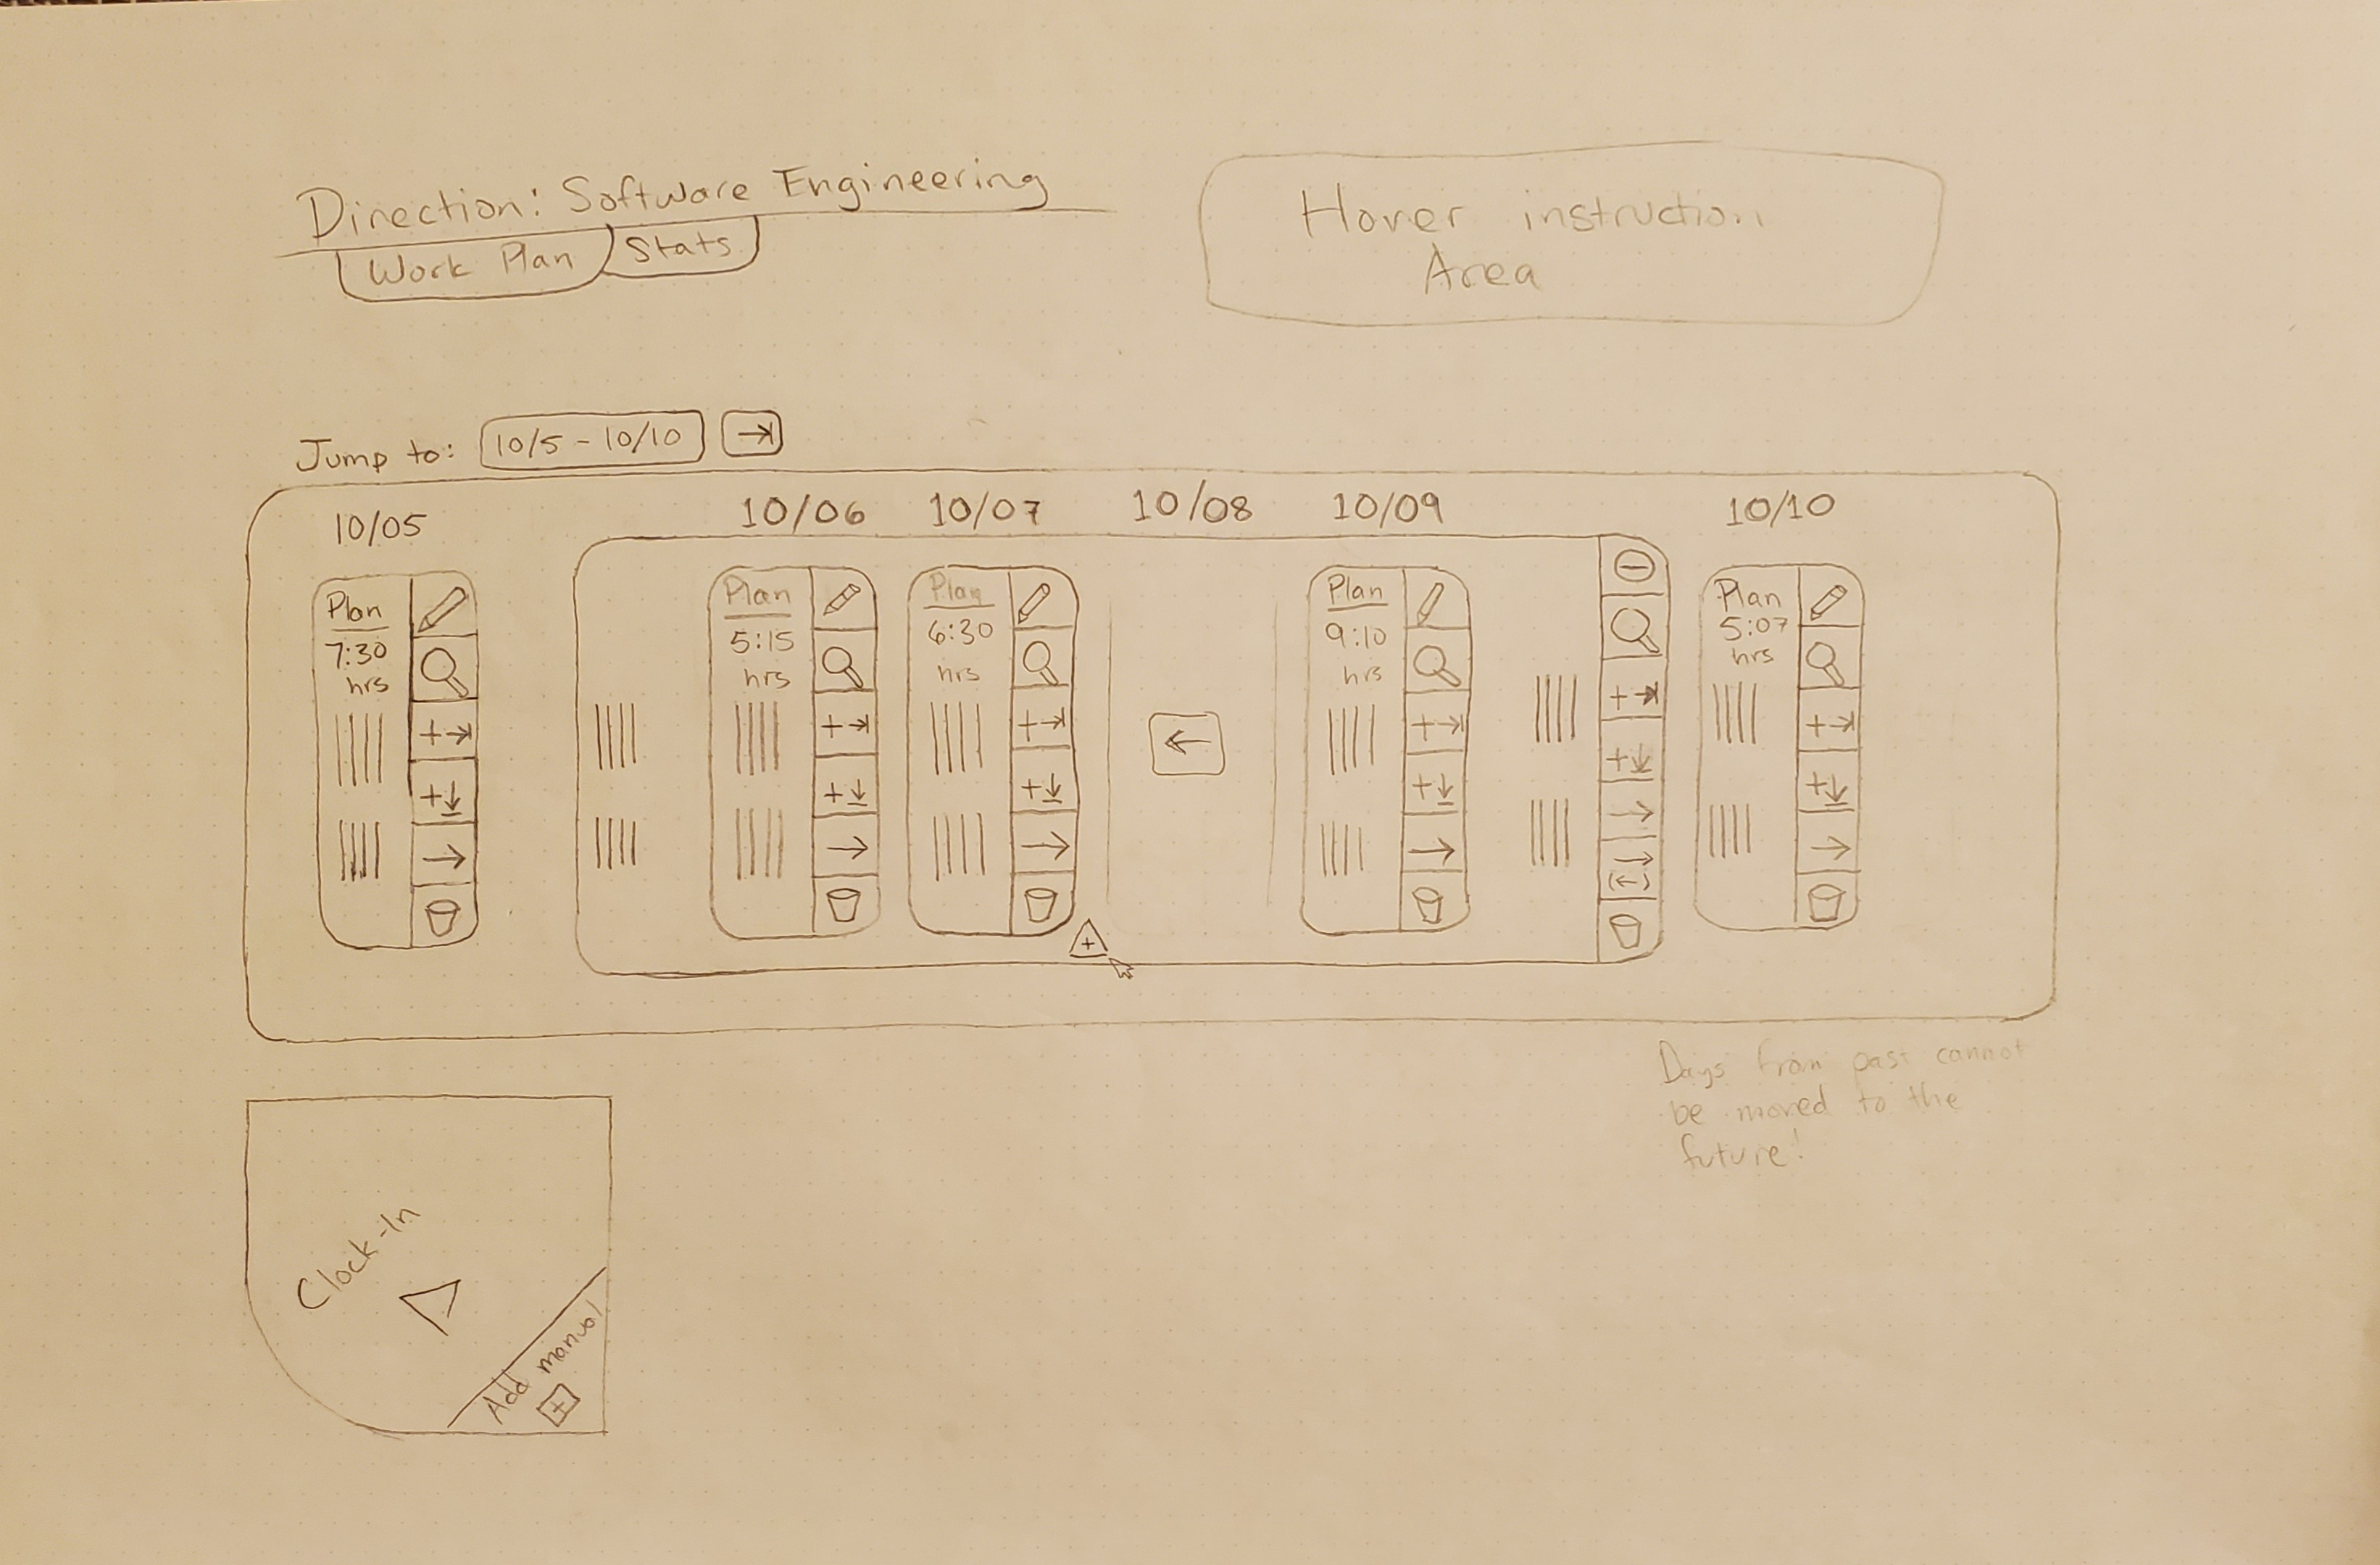 Direction: Software Engineering
Work Plan
Stats
Hover instruction
Area
Jump to: 10/5 - 10/10
10/05
10/06
10/07
10/08
10/09
10/10
Plan
7:30
hrs
Plan
5:15
hrs
Plan
6:30
hrs
Plan
9:10
hrs
Plan
5:07
hrs
Days from past cannot
be moved to the
future!
Clock-In
Add manual